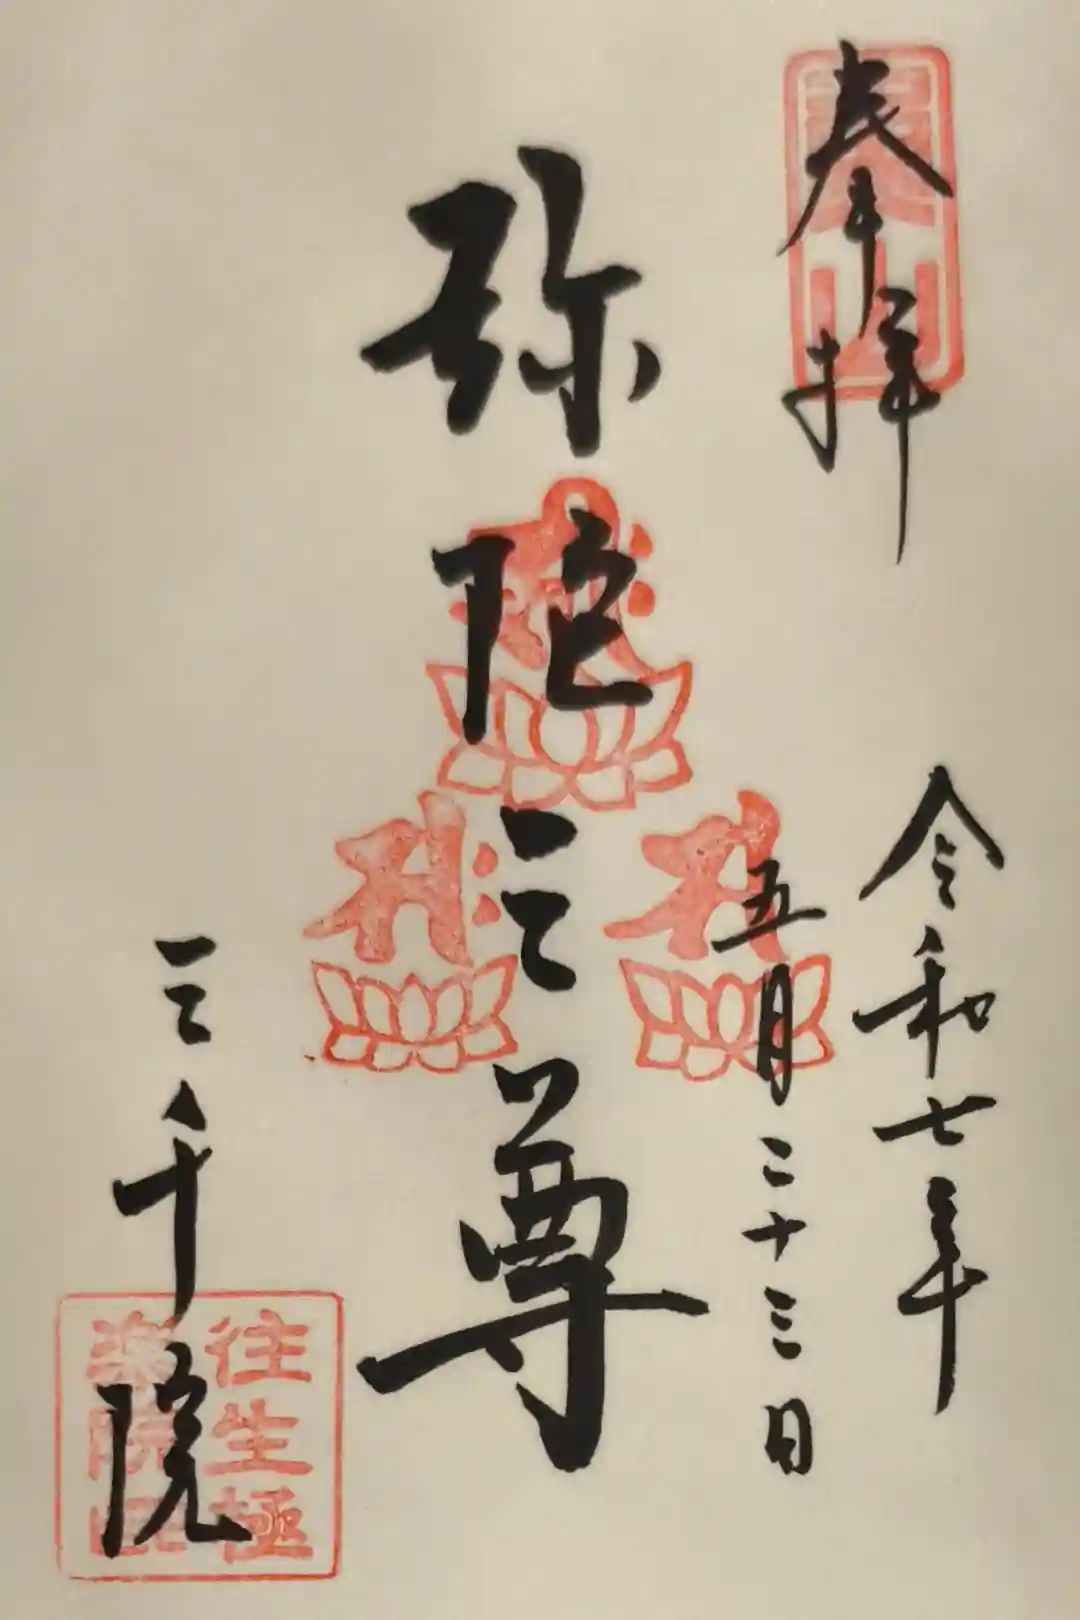 奉拝
令和七年
五月二十三日
弥陀三尊
三千院
往生極
楽院印